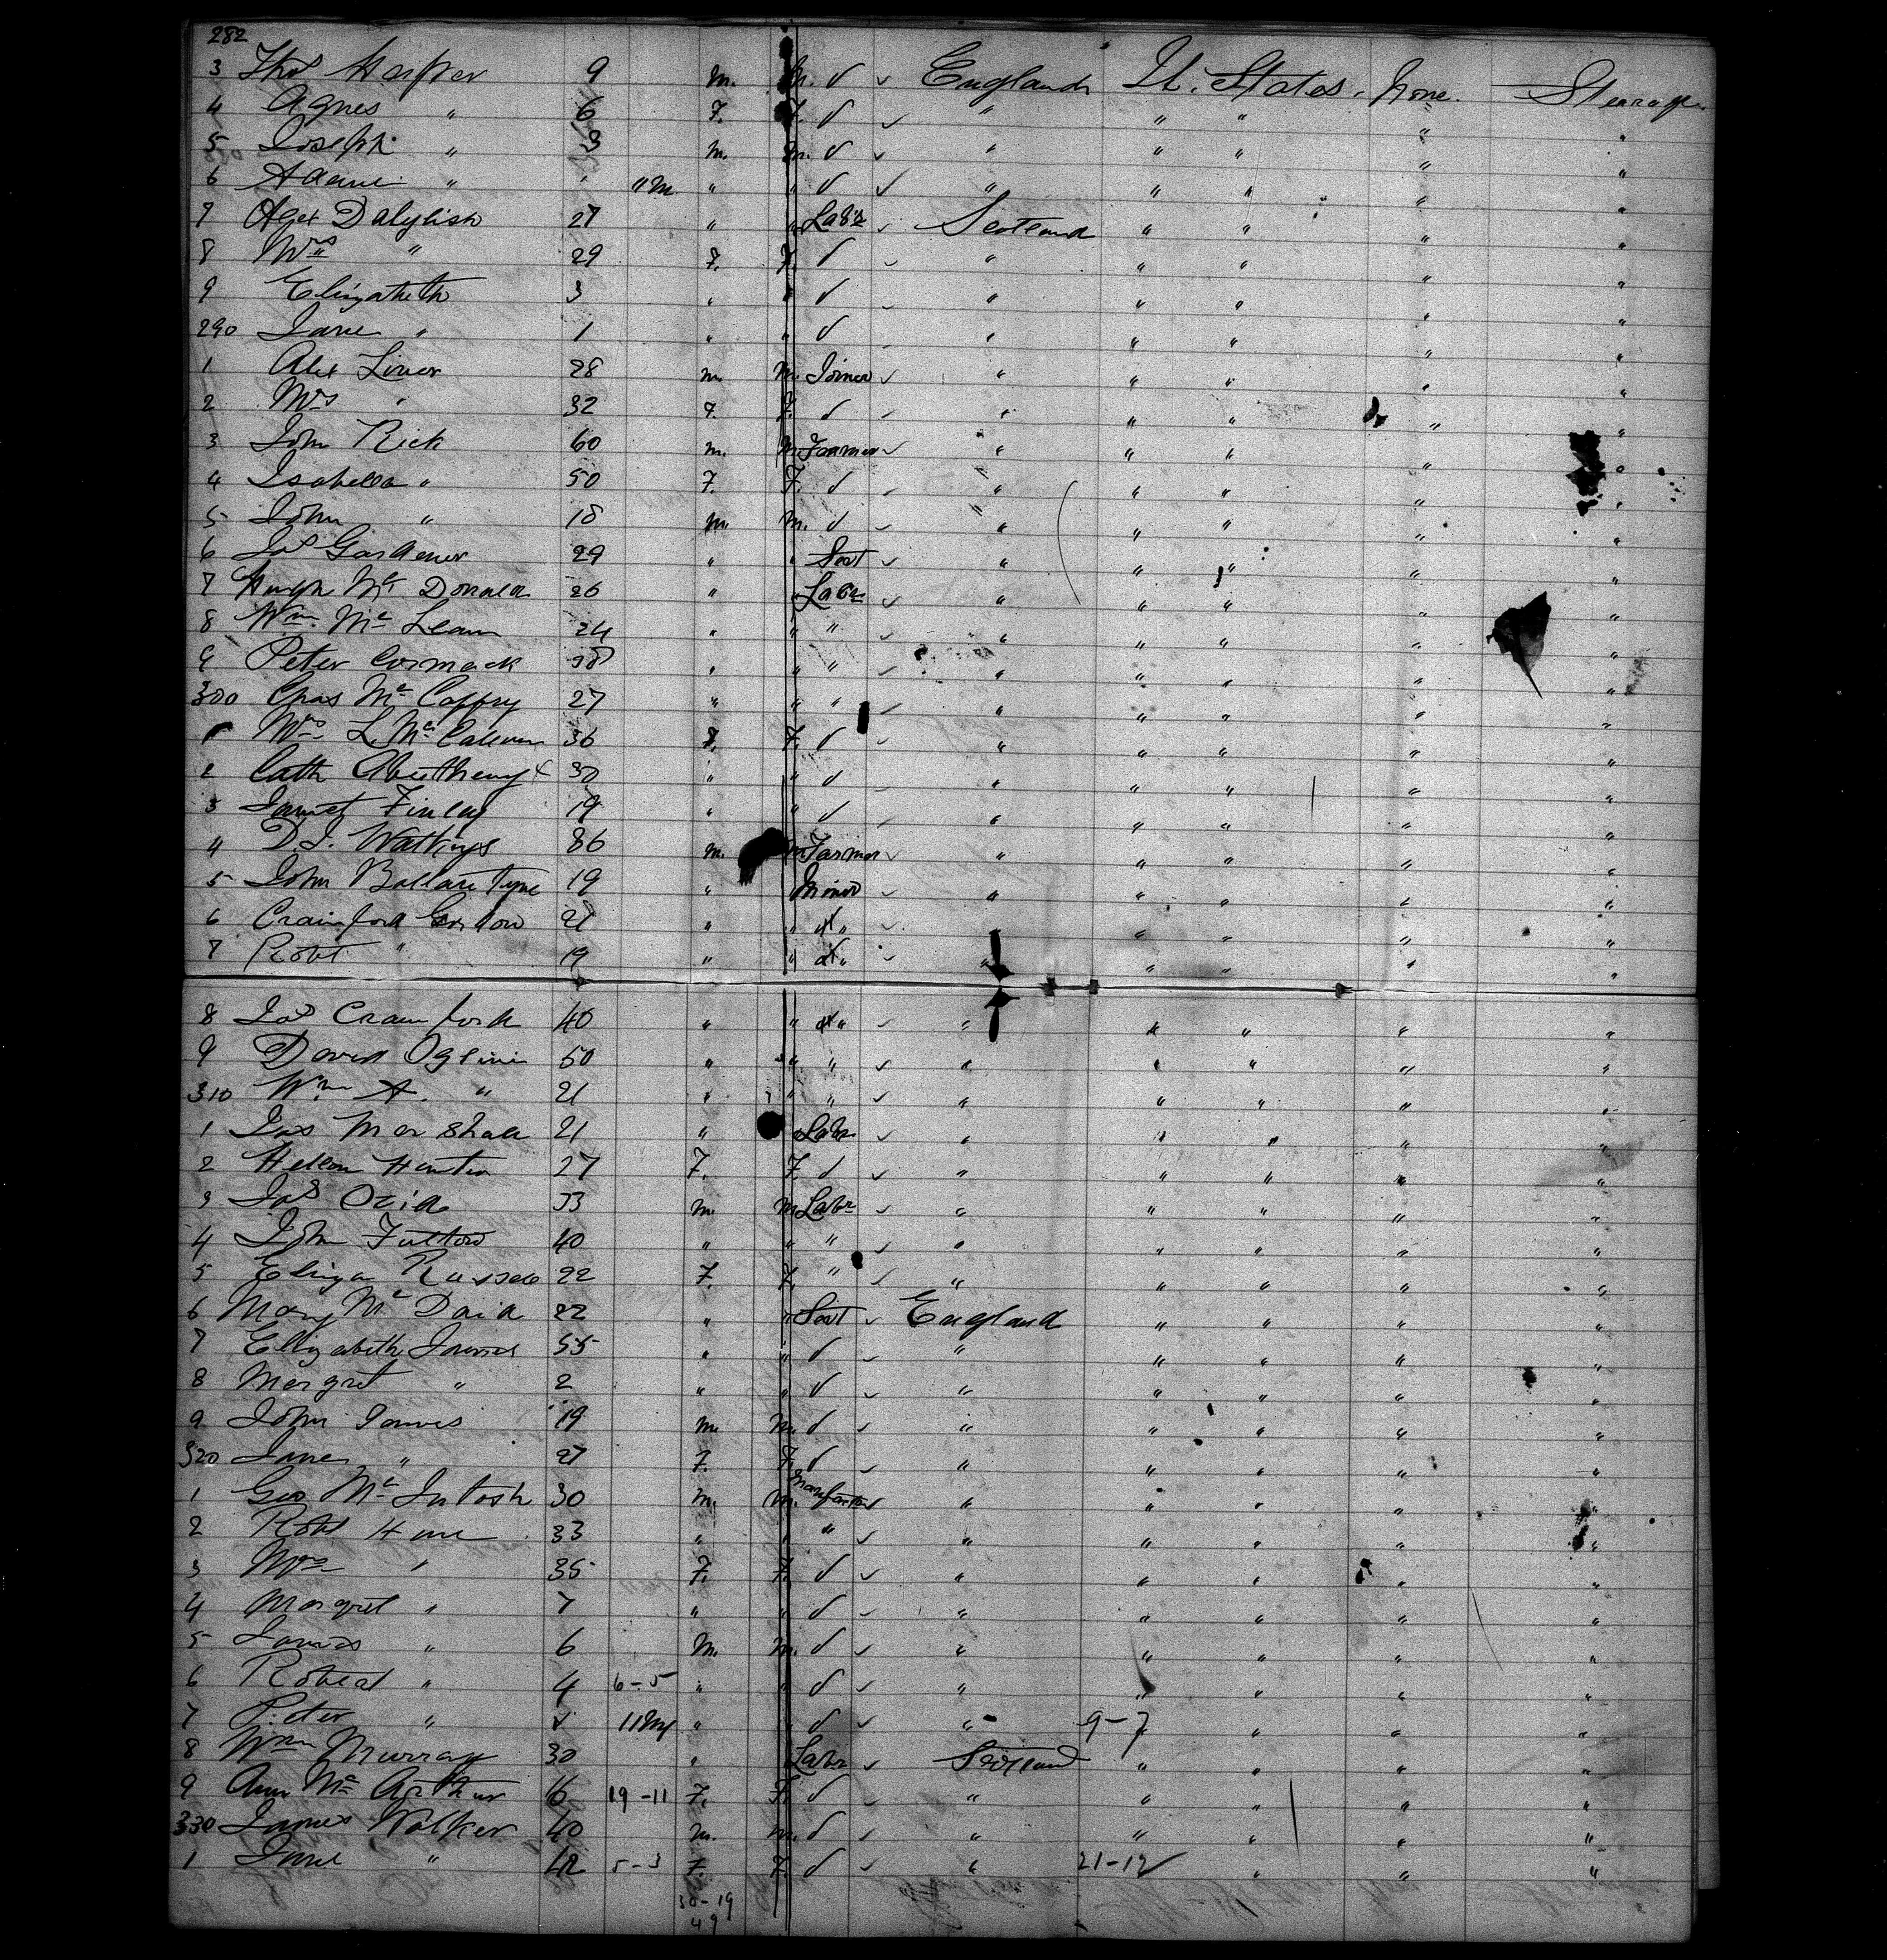 282
3 Thos Harper 9 m. m. √ ✓ England U. States. None. Steerage
4 Agnes " 6 F. F. √ ✓ " " " " "
5 Joseph " 3 m. m. √ ✓ " " " " "
6 " " "m " " √ ✓ " " " " "
7 Alex Dalglish 27 " " Labr ✓ Scotland " " " "
8 Mrs " 29 F. F. √ ✓ " " " " "
9 Elizabeth 3 " " √ ✓ " " " " "
290 Jane " 1 " " √ " " " " "
1 Alex 28 m. m. Joiner ✓ " " " " "
2 Mrs " 32 F. F. √ ✓ " " " " "
3 John Rick 60 m. m. Farmer ✓ " " " " "
4 Isabella " 50 F. F. √ ✓ " " " " "
5 John " 18 m. m. √ ✓ " " " " "
6 Jas Gardener 29 " " Sert ✓ " " " " "
7 Hugh Mc Donald 26 " " Labr ✓ " " " " "
8 Wm Mc Lean 24 " " " ✓ " " " " "
9 Peter Cormack 38 " " " ✓ " " " " "
300 Chas Mc Caffry 27 " " " ✓ " " " " "
1 Mrs L Mc 36 F. F. √ ✓ " " " " "
2 Cath Abertheny 30 " " √ ✓ " " " " "
3 Janet Finlay 19 " " √ ✓ " " " " "
4 D.J. Watkins 86 m. m Farmer ✓ " " " " "
5 John Ballantyne 19 " Miner ✓ " " " " "
6 Crawford Gordon 21 " " " ✓ " " " " "
7 Robt " 19 " " " ✓ " " " " "
8 Jas Crawford 40 " " " ✓ " " " " "
9 David 50 " " " ✓ " " " " "
310 Wm A. " 21 " " " ✓ " " " " "
1 Jas Marshall 21 " " Labr ✓ " " " " "
2 Hellen Hunter 27 F. F. √ ✓ " " " " "
3 Jas 33 m. m Labr ✓ " " " " "
4 John Fulton 40 " " " ✓ " " " " "
5 Eliza Russell 22 F. F. " ✓ " " " " "
6 Mary Mc Daid 22 " " Sert ✓ England " " " "
7 Elizabeth 55 " " √ ✓ " " " " "
8 Margret " 2 " " √ ✓ " " " " "
9 John James 19 m. m. √ ✓ " " " " "
320 Jane " 27 F. F. √ ✓ " " " " "
1 Geo Mc Intosh 30 m. m. ✓ " " " " "
2 Robt Hume 33 " " " ✓ " " " " "
3 Mrs " 35 F. F. √ ✓ " " " " "
4 Margret " 7 " " √ ✓ " " " " "
5 James " 6 m. m. √ ✓ " " " " "
6 Robert " 4 6-5 " " √ ✓ " " " " "
7 Peter " √ 11 My " " √ ✓ " 9-7 " " "
8 Wm Murray 30 " Labr ✓ Scotland " " " "
9 Ann Mc Arthur 16 19-11 F. F. √ ✓ " " " " "
330 James Walker 40 m. m. √ ✓ " " " " "
1 Jane " 42 5-3 F. F. √ ✓ " 21-12 " " "
30-19
49